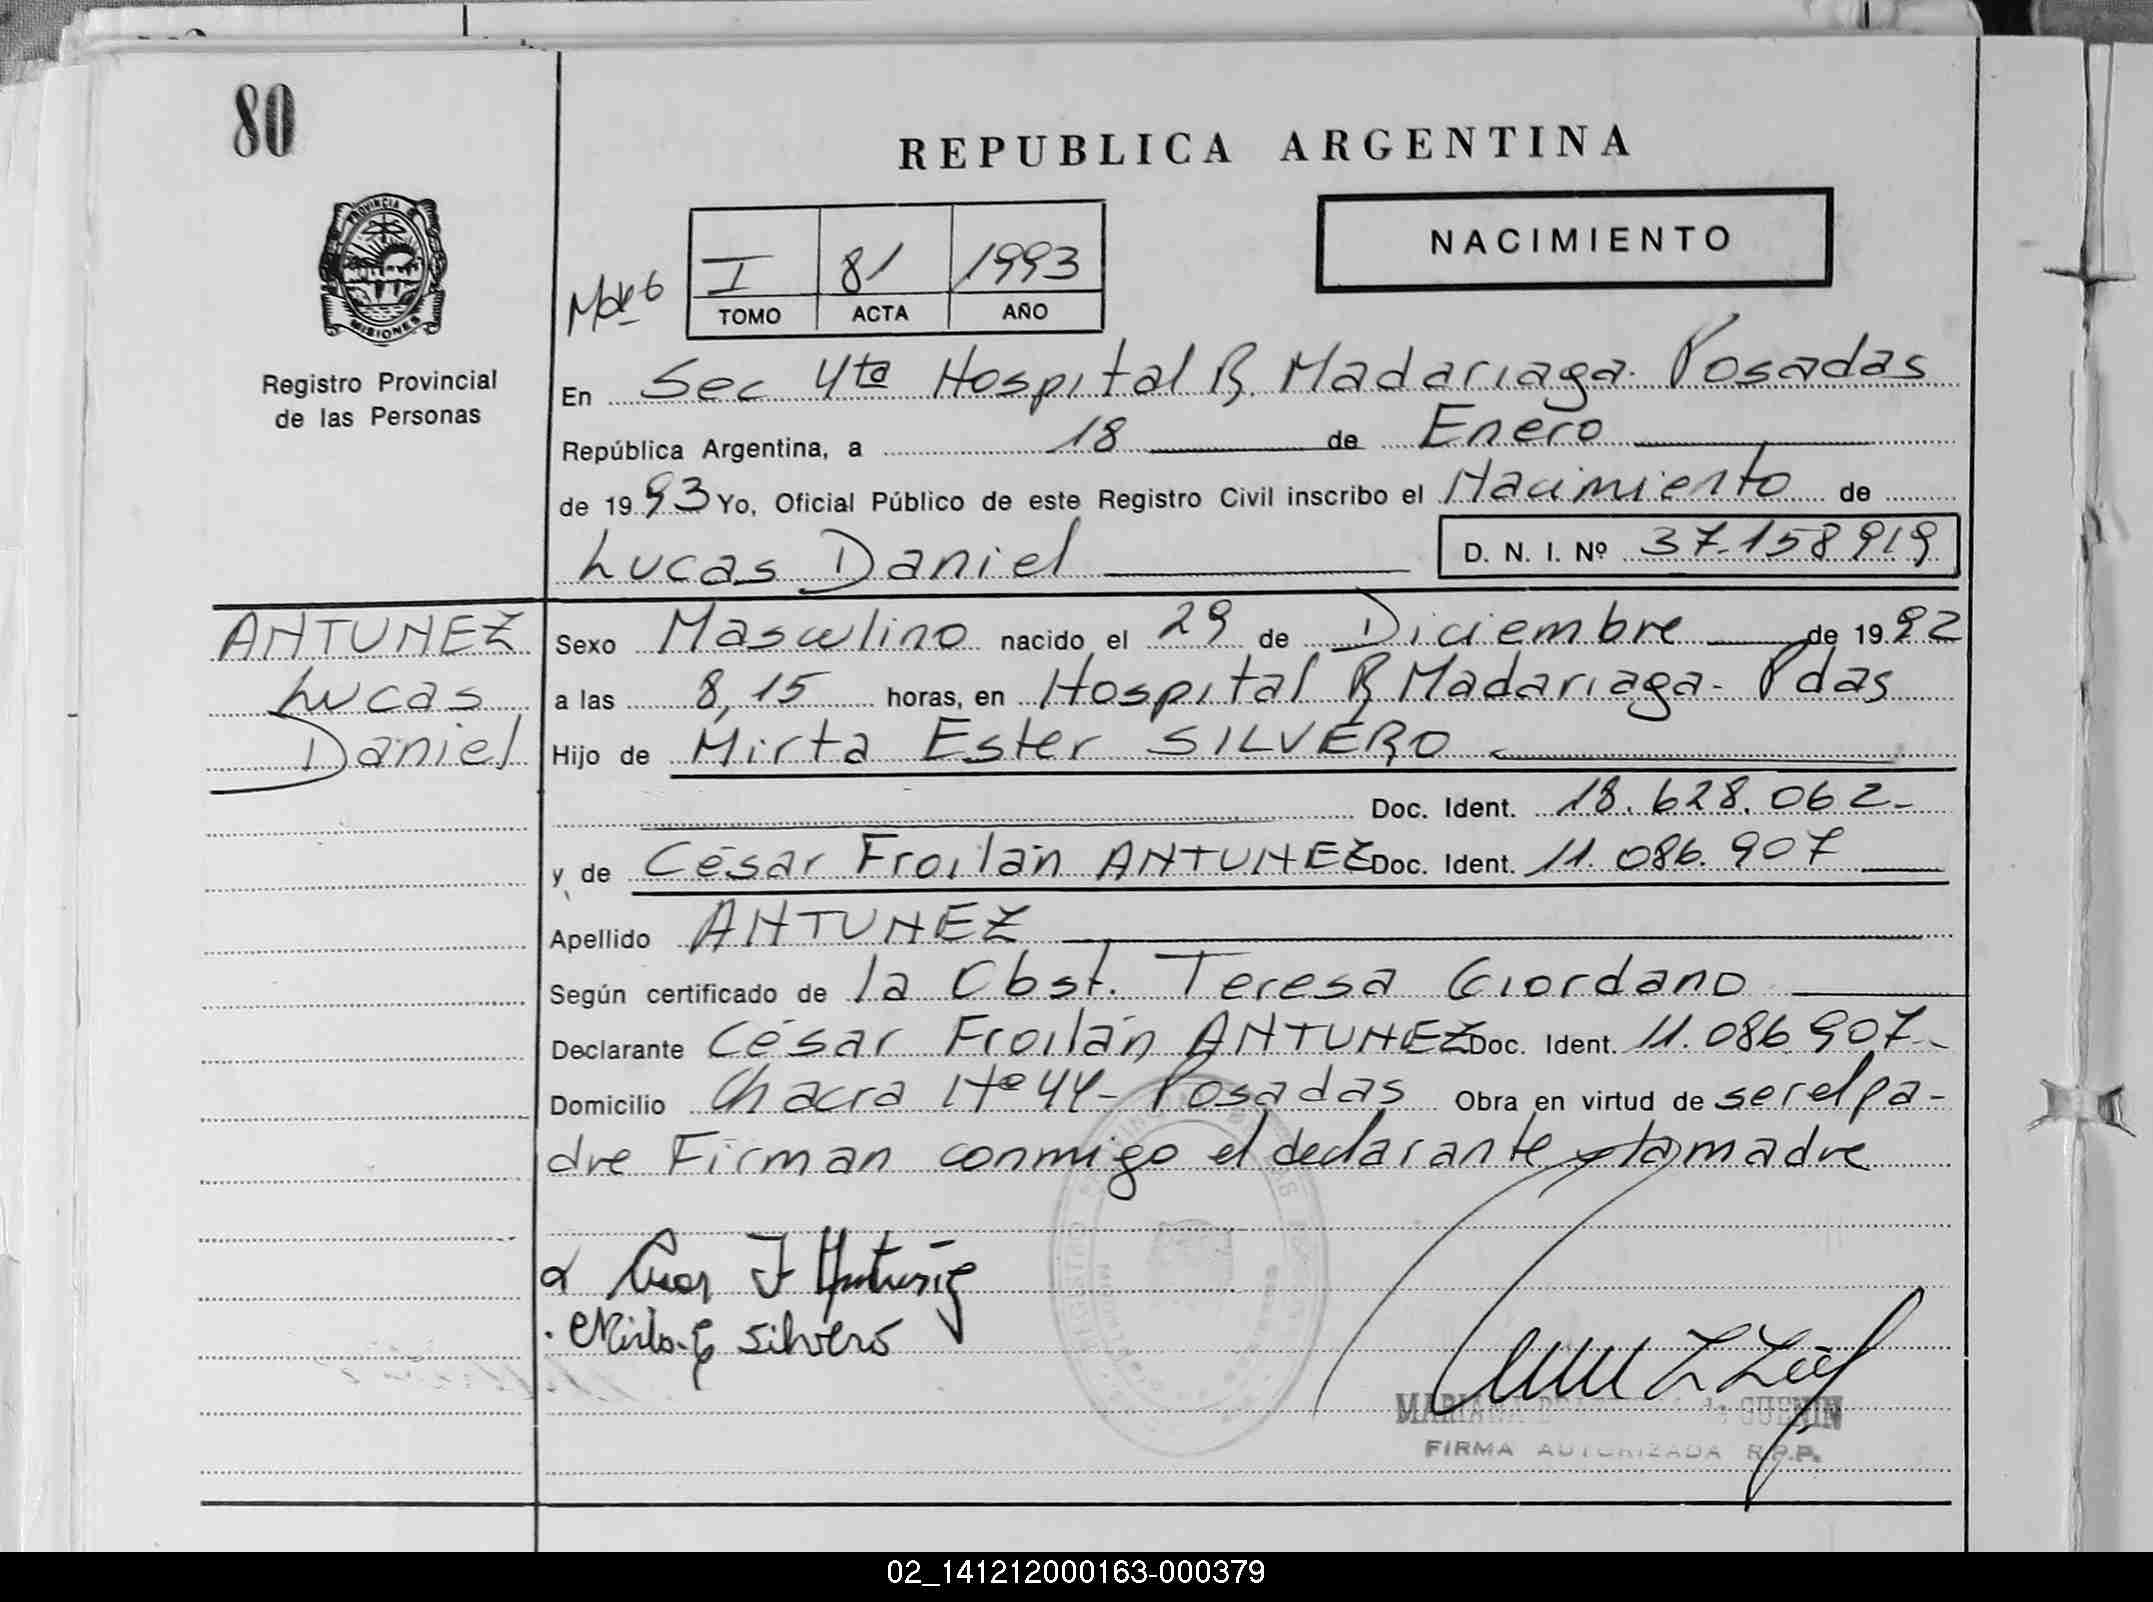 80
REPUBLICA ARGENTINA
PROVINCIA
MISIONES
Registro Provincial
de las Personas
NACIMIENTO
I 81 1993
TOMO ACTA AÑO
En Sec 4ta Hospital R. Madariaga. Posadas
República Argentina, a 18 de Enero
de 1993 Yo, Oficial Público de este Registro Civil inscribo el Nacimiento de
Lucas Daniel D. N. I. Nº 37.158919
ANTUNEZ
Lucas
Daniel
Sexo Masculino nacido el 29 de Diciembre de 1992
a las 8,15 horas, en Hospital R Madariaga - Pdas
Hijo de Mirta Ester SILVERO
Doc. Ident. 18.628.062-
y de César Froilán ANTUNEZ Doc. Ident. 11.086.907
Apellido ANTUNEZ
Según certificado de la Obst. Teresa Giordano
Declarante César Froilán ANTUNEZ Doc. Ident. 11.086907-
Domicilio Chacra Nº 44- Posadas Obra en virtud de ser el pa-
dre Firman conmigo el declarante y la madre
Silvero
MARIANA GUENIN
FIRMA AUTORIZADA R.P.P.
02_141212000163-000379